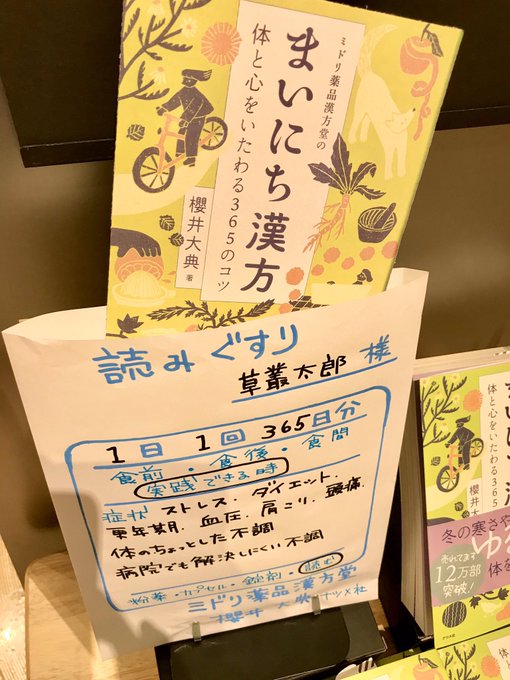 ミドリ薬品漢方堂の
まいにち漢方
体と心をいたわる365のコツ
櫻井大典 著
読みぐすり
草叢太郎 様
1日 1回 365日分
食前・食後・食間
実践できる時
症状 ストレス・ダイエット・頭痛・
更年期・血圧・肩こり・
体のちょっとした不調
病院でも解決しにくい不調
粉薬・カプセル・錠剤・読む
ミドリ薬品漢方堂
櫻井大典 ナツメ社
まいにち
体と心をいたわる365
櫻井大
冬の寒さや
ゆ
体を
売れてます
12万部
突破!
ナツメ社